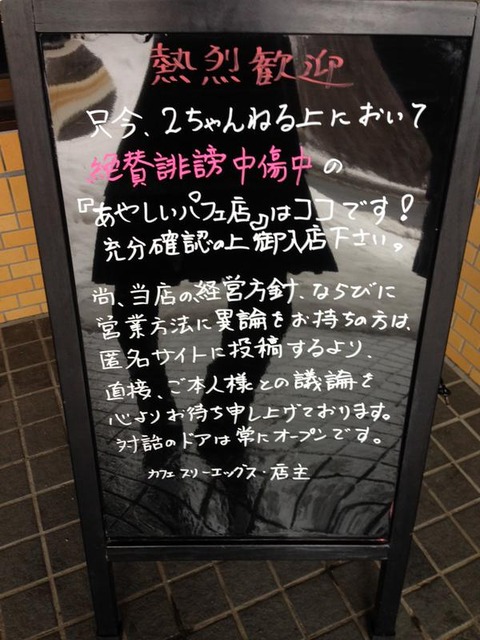 熱烈歓迎
只今、2ちゃんねる上において
絶賛誹謗中傷中の
『あやしいパフェ店』はココです!
充分確認の上御入店下さい。
尚、当店の経営方針、ならびに
営業方法に異論をお持ちの方は、
匿名サイトに投稿するより、
直接、ご本人様との議論を
心よりお待ち申し上げております。
対話のドアは常にオープンです。
カフェ スリーエックス・店主